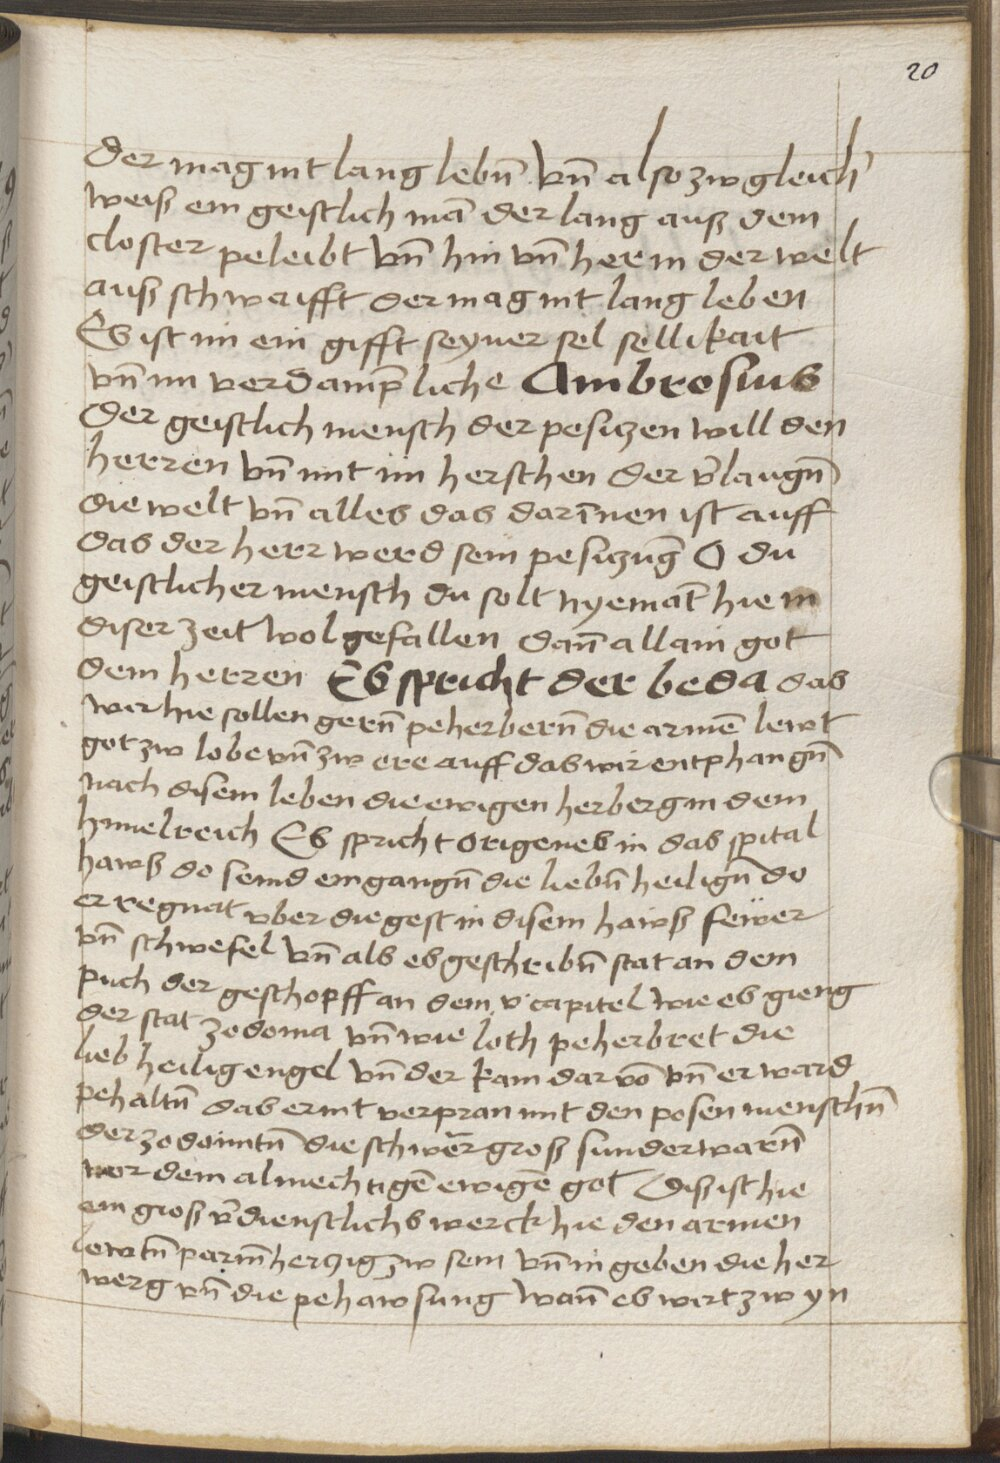 20
der mag nit lang lebn̄ vn̄ also zw gleich
weiß ein geistlich mā der lang auß dem
closter peleibt vn̄ hin vn̄ her in der welt
auß schwaifft der mag nit lang leben
Es ist im ein gifft seyner sel sellikait
vn̄ im verdamp̄liche Ambrosius
Der geistlich mensch der pesiczen will den
herren vn̄ mit im herschen der v̄laugn̄
die welt vn̄ alles das dar īnnen ist auff
das der herr werd sein pesiczūg O du
geistlicher mensch du solt nyemāt hie in
diser zeit wolgefallen dan̄ allain got
dem herren Es spricht der beda das
wir hie sollen gern̄ peherbern̄ die armē lewt
got zw lobe vn̄ zw ere auff das wir entphangn̄
nach disem leben die ewigen herberg in dem
himelreich Es spricht origenes in das spital
haws do seind eingangn̄ die liebn̄ heilign̄ do
er regnat vber die gest in disem hawß fewer
vn̄ schwefel vn̄ als es geschribn̄ stat an dem
puch der geschopff an dem v capitel wie es gieng
der stat zodoma vn̄ wie loth peherbret die
lieb heilig engel vn̄ der kam dar vō vn̄ er ward
pehaltn̄ das er nit verpran mit den posen menschn̄
der zodomitn̄ die schwer groß sunder warn̄
vor dem almechtigē ewigē got Diß ist hie
ein groß v̄dienstlichs werck hie den armen
lewtn̄ parm̄herczig zw sein vn̄ in geben die her
werg vn̄ die pehawsung wan̄ es wirt zw yn